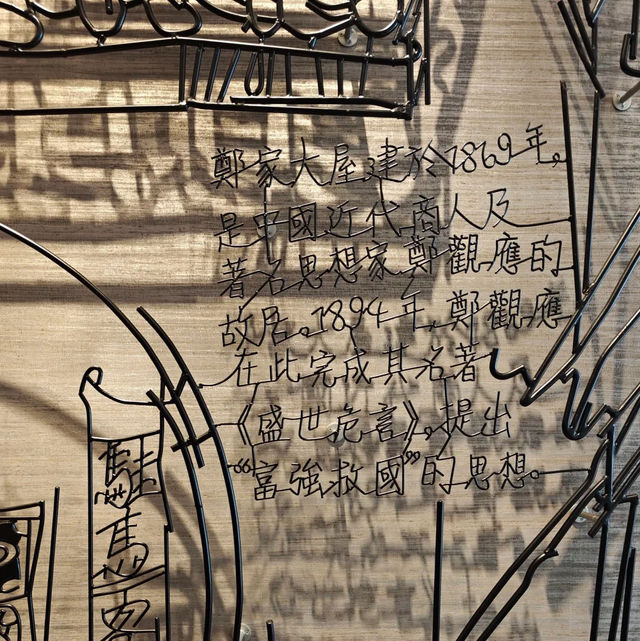 鄭家大屋建於1869年,
是中國近代商人及
著名思想家鄭觀應的
故居。1894年,鄭觀應
在此完成其名著
《盛世危言》,提出
“富強救國”的思想。